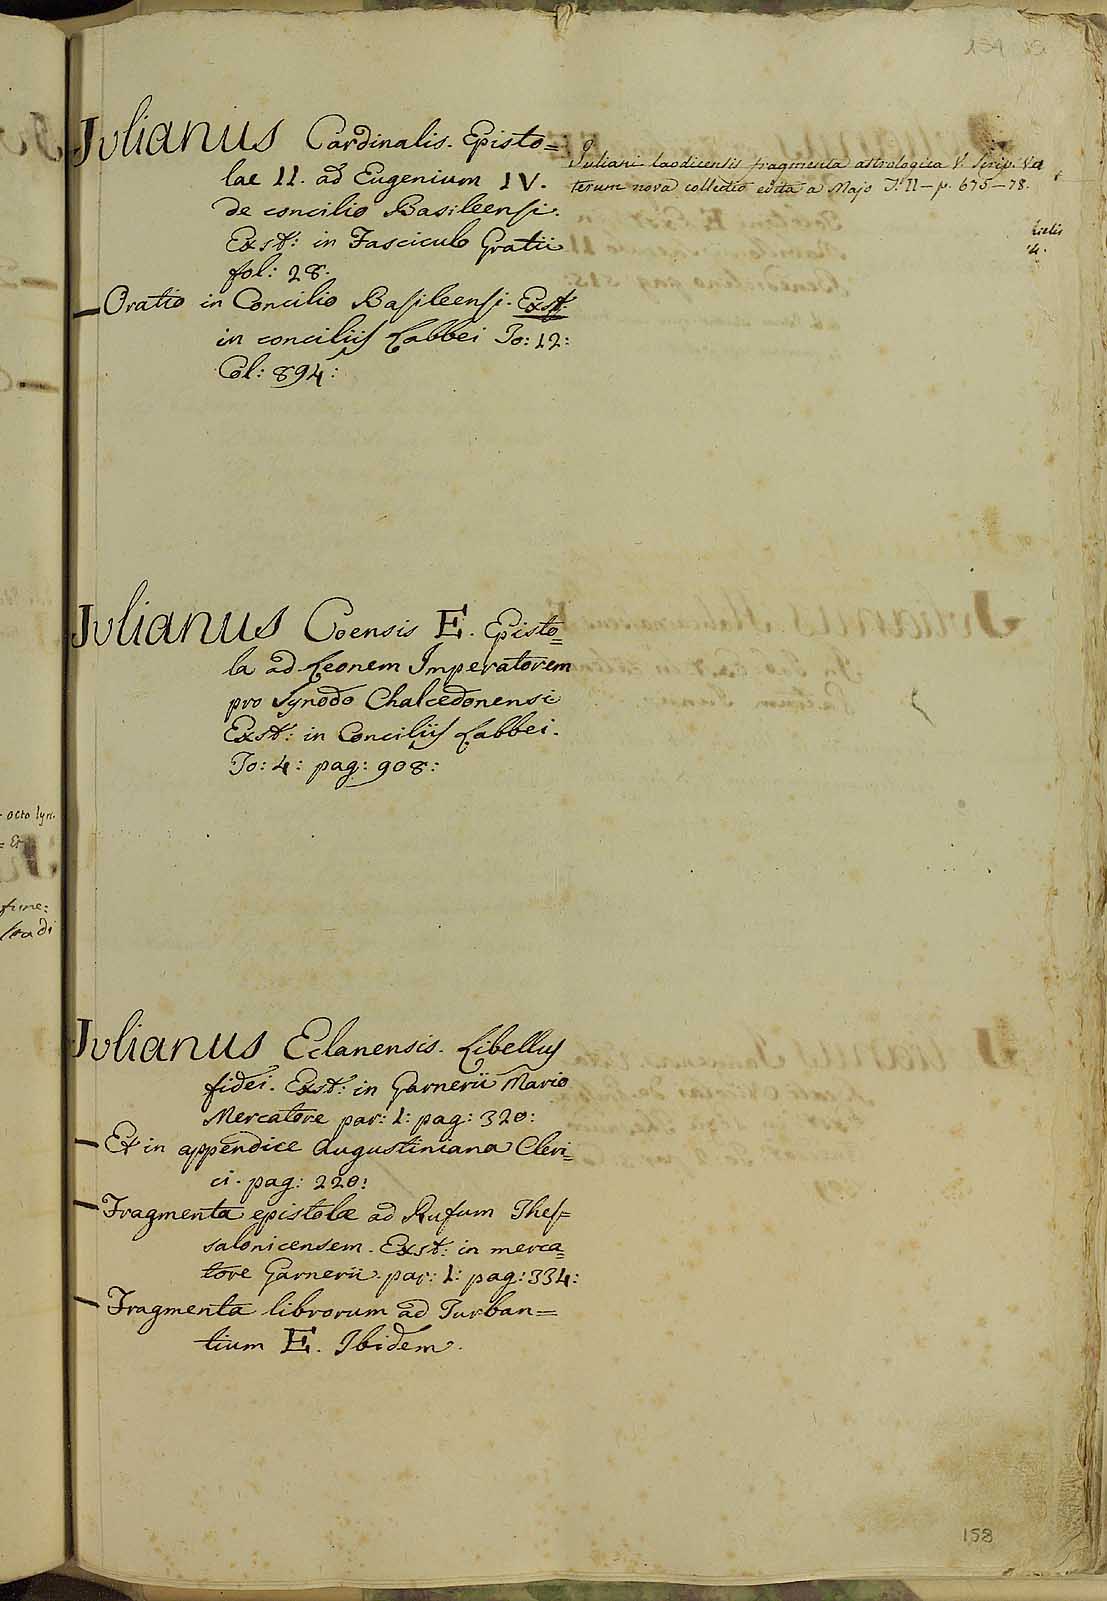 Julianus Cardinalis. Episto=
lae II. ad Eugenium IV.
de concilio Basileensi.
Exst: in Fasciculo Gratii
fol: 28.
— Oratio in Concilio Basileensi. Exst:
in conciliis Labbei To: 12:
Col: 894:
Juliani laodicensis fragmenta astrologica V. Scrip. Ve
terum nova collectio edita a Majo T. II — p. 675—78.
4.
Julianus Coensis E. Episto=
la ad Leonem Imperatorem
pro Synodo Chalcedonensi
Exst: in Conciliis Labbei.
To: 4: pag: 908:
Julianus Eclanensis. Libellus
fidei. Exst: in Garnerii Mario
Mercatore par: 1: pag: 320:
— Et in appendice Augustiniana Cleri=
ci. pag: 220:
— Fragmenta epistolæ ad Rufum Thes=
salonicensem. Exst: in merca=
tore Garnerii par: 1: pag: 334:
— Fragmenta librorum ad Turban=
tium E. Ibidem.
octo lyn.
= Et
fune:
158